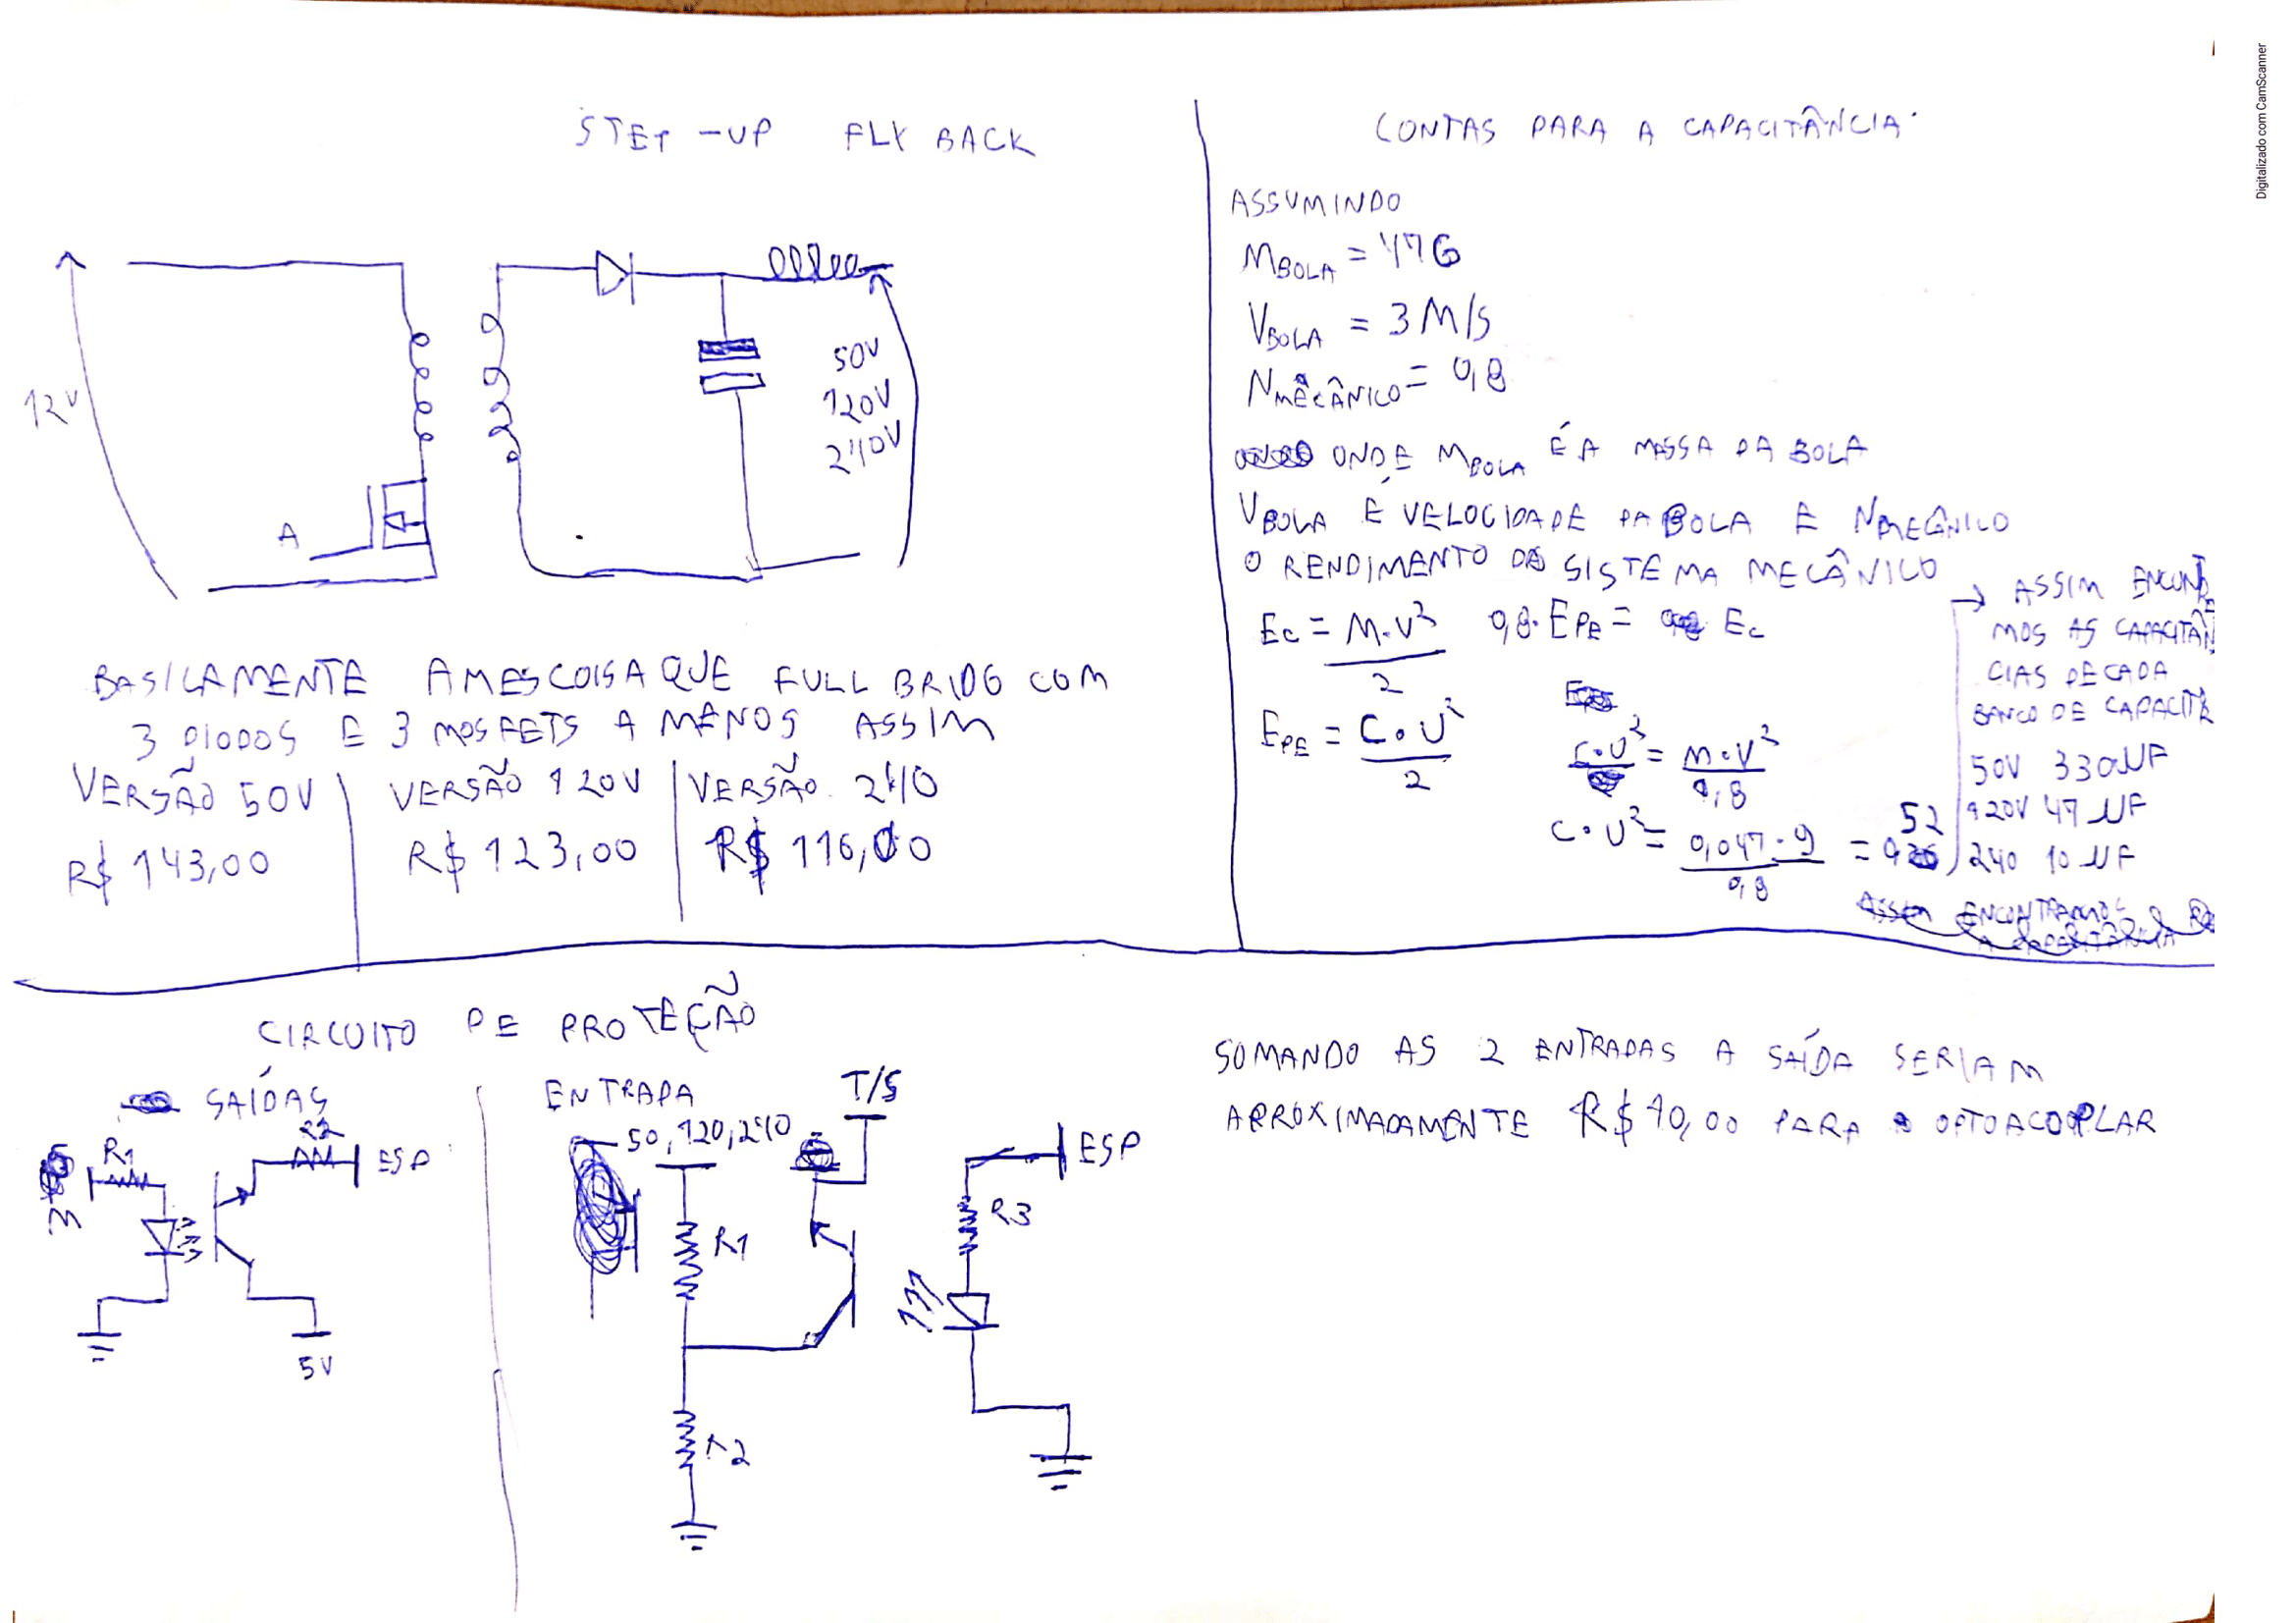 STET-UP FLY BACK
12V
A
50V
120V
240V
BASICAMENTE AMESCOISA QUE FULL BRIDG COM
3 DIODOS E 3 MOSFETS A MENOS ASSIM
VERSÃO 50V
R$ 143,00
VERSÃO 120V
R$ 123,00
VERSÃO 240
R$ 116,00
CONTAS PARA A CAPACITÂNCIA
ASSUMINDO
MBOLA = 47G
VBOLA = 3 M/S
NMECÂNICO = 0,8
ONDE MBOLA É A MASSA DA BOLA
VBOLA É VELOCIDADE DA BOLA E NMECÂNICO
O RENDIMENTO DO SISTEMA MECÂNICO
Ec = M.V²/2 0,8.EPE = Ec
EPE = C.U²/2
C.U² = M.V²/0,8
C.U² = 0,047.9/0,8 = 0,52
→ ASSIM ENCONT
MOS AS CAPACITÂN
CIAS DE CADA
BANCO DE CAPACIT
50V 330UF
120V 47UF
240 10UF
CIRCUITO DE PROTEÇÃO
SAÍDAS
R1
R2
ESP
M
5V
ENTRADA
50,120,240
T/S
R1
R2
R3
ESP
SOMANDO AS 2 ENTRADAS A SAÍDA SERIAM
APROXIMADAMENTE R$10,00 PARA OPTOACOPLAR
Digitalizado com CamScanner